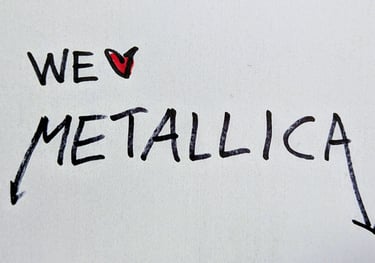 WE ♥
METALLICA